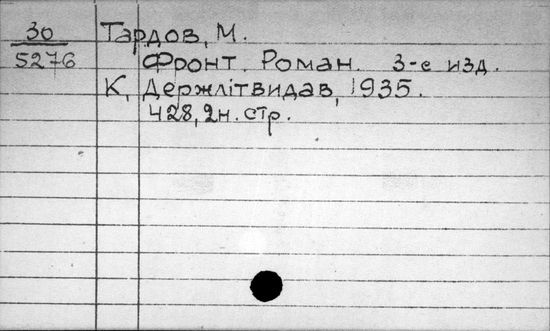 30 Тардов, М.
5276 Фронт. Роман. 3-е изд.
К, Держлітвидав, 1935.
428, 2н. стр.